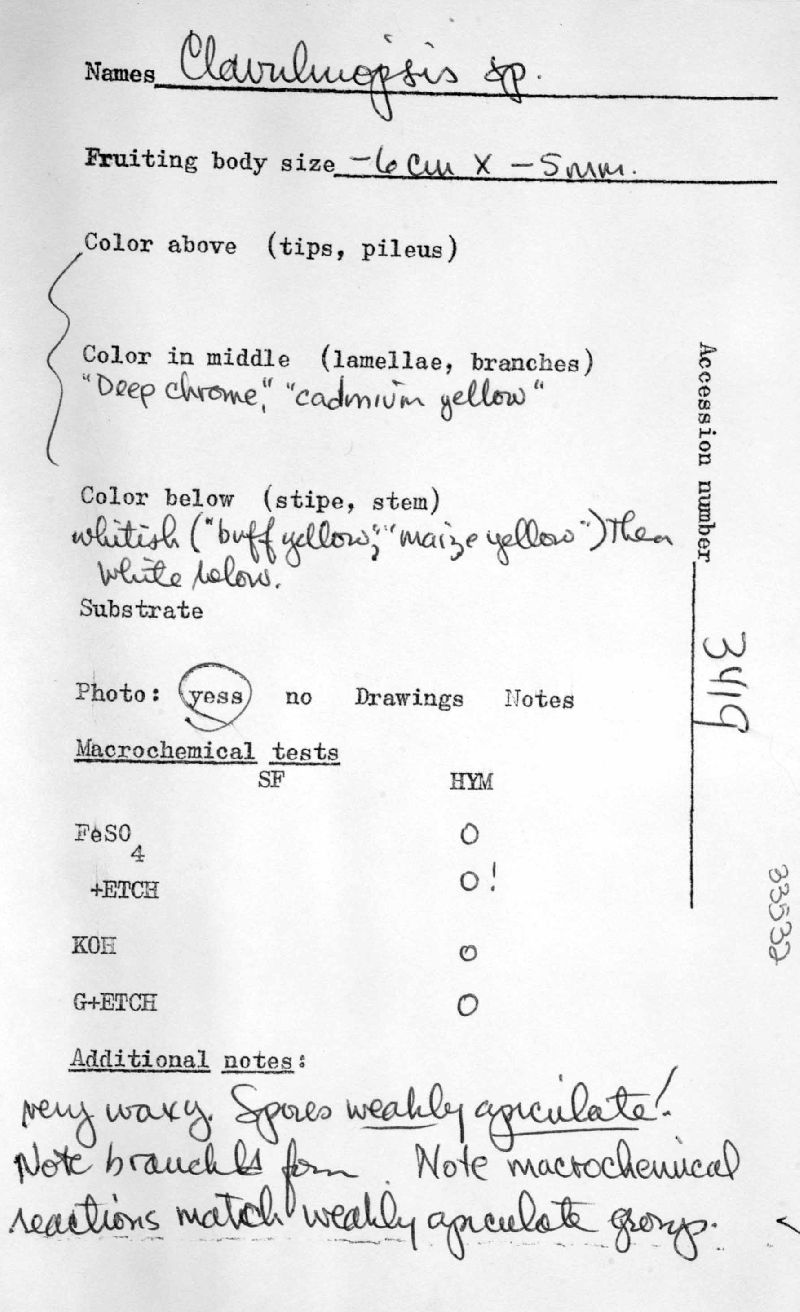 Names Clavulinopsis sp.
Fruiting body size -6 cm X -5 mm.
Color above (tips, pileus)
Color in middle (lamellae, branches)
"Deep chrome," "cadmium yellow"
Color below (stipe, stem)
whitish ("buff yellow," "maize yellow") then
white below.
Substrate
Photo: yess no Drawings Notes
Macrochemical tests
SF HYM
FeSO4 O
+ETCH O!
KOH O
G+ETCH O
Additional notes:
very waxy. Spores weakly apiculate!
Note branched form. Note macrochemical
reactions match weakly apiculate group.
Accession number 3419
33532